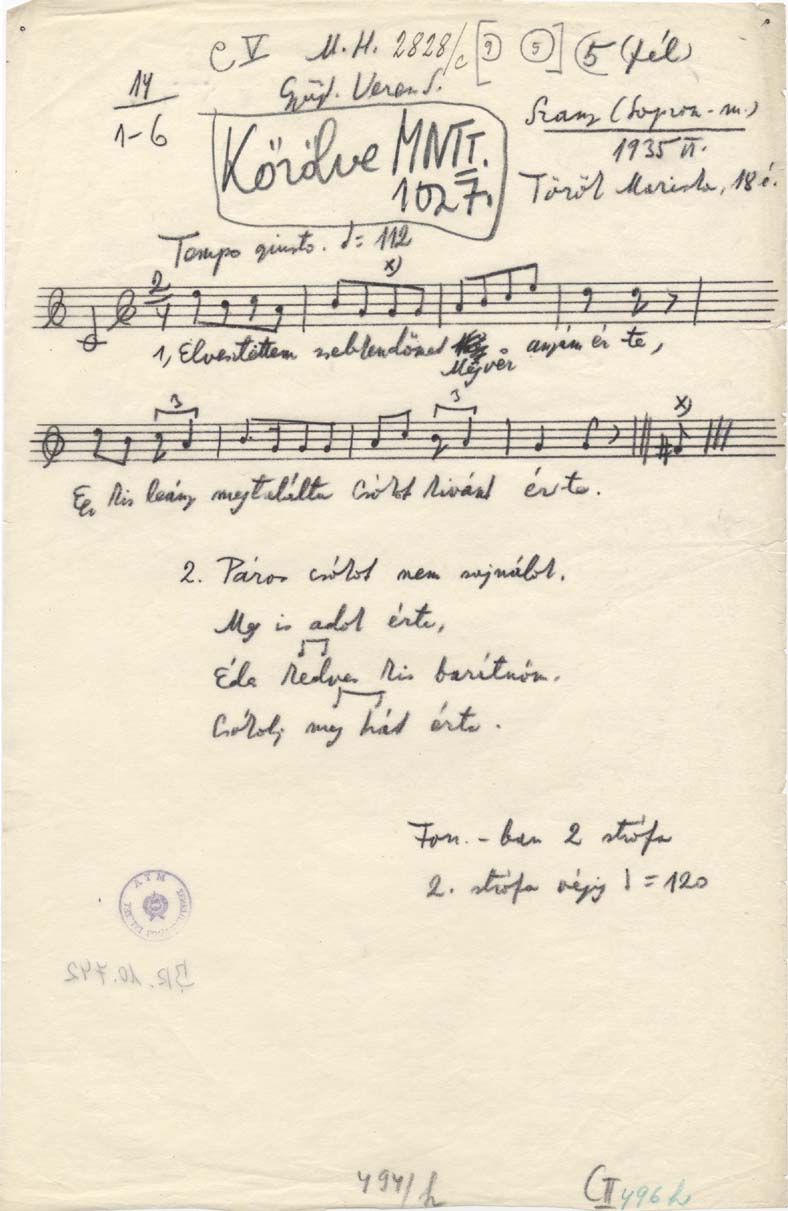 C V M. H. 2828/c [9 5] 5 (fél)
14
1-6
Gyüjt. Veress S.
Szany (Sopron-m.)
1935 VI.
Török Mariska, 18 é.
Közölve MNTT.
1027.
Tempo giusto. = 112
x)
2
4
1, Elvesztettem zsebkendőmet
Megver anyám ér-te,
3
3
x)
Egy kis leány megtalálta Csókot kiván érte.
2. Páros csókot nem sajnálok,
Meg is adok érte,
Éde kedves kis barátnőm,
Csókolj meg hát érte.
Fon.-ban 2 strófa
2. strófa végig = 120
BR. 10.742
494/h
C II 496 h